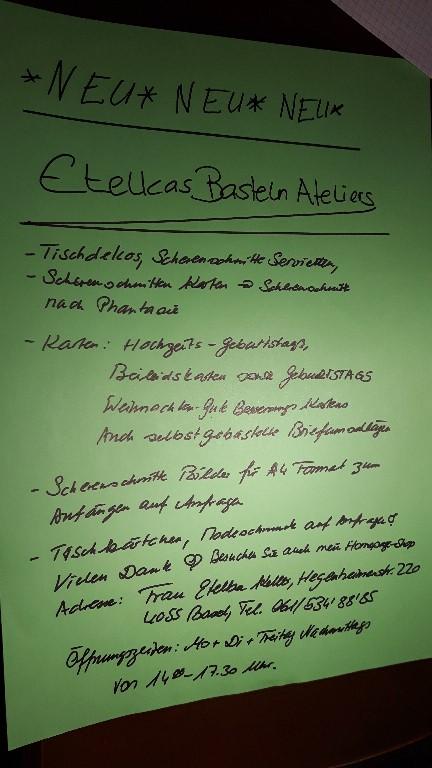 *NEU* NEU* NEU*
Etelkas Basteln Ateliers
- Tischdekos, Scherenschnitte Servietten,
- Scherenschnitten Karten → Scherenschnitte
nach Phantasie
- Karten: Hochzeits - Geburtstags,
Beileidskarten sowie GEBURTSTAGS
Weihnachten - Gute Besserungs Kartens
Auch selbstgebastelte Briefumschlägen
- Scherenschnitte Bilder für A4 Format zum
Aufhängen auf Anfragen
- Tischkärtchen, Modeschmuck auf Anfragen
Vielen Dank Besuchen Sie auch mein Homepage-Shop
Adresse: Frau Etelka Keller, Hegenheimerstr. 220
4055 Basel, Tel. 061/534'88'85
Öffnungszeiten: Mo + Di + Freitag Nachmittags
Von 14.00 - 17.30 Uhr.